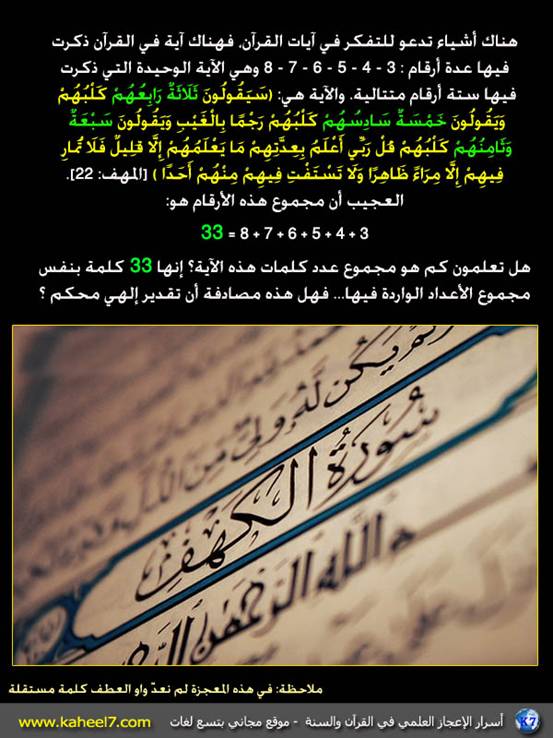 هناك أشياء تدعو للتفكر في آيات القرآن، فهناك آية في القرآن ذكرت
فيها عدة أرقام : 3 - 4 - 5 - 6 - 7 - 8 وهي الآية الوحيدة التي ذكرت
فيها ستة أرقام متتالية. والآية هي: (سَيَقُولُونَ ثَلَاثَةٌ رَابِعُهُمْ كَلْبُهُمْ
وَيَقُولُونَ خَمْسَةٌ سَادِسُهُمْ كَلْبُهُمْ رَجْمًا بِالْغَيْبِ وَيَقُولُونَ سَبْعَةٌ
وَثَامِنُهُمْ كَلْبُهُمْ قُلْ رَبِّي أَعْلَمُ بِعِدَّتِهِمْ مَا يَعْلَمُهُمْ إِلَّا قَلِيلٌ فَلَا تُمَارِ
فِيهِمْ إِلَّا مِرَاءً ظَاهِرًا وَلَا تَسْتَفْتِ فِيهِمْ مِنْهُمْ أَحَدًا ) [الكهف: 22].
العجيب أن مجموع هذه الأرقام هو:
3 + 4 + 5 + 6 + 7 + 8 = 33
هل تعلمون كم هو مجموع عدد كلمات هذه الآية؟ إنها 33 كلمة بنفس
مجموع الأعداد الواردة فيها... فهل هذه مصادفة أن تقدير إلهي محكم ؟
يكن له ولي من الذل
سورة الكهف
الله الرحمن
ملاحظة: في هذه المعجزة لم نعدّ واو العطف كلمة مستقلة
أسرار الإعجاز العلمي في القرآن والسنة - موقع مجاني بتسع لغات www.kaheel7.com
K7